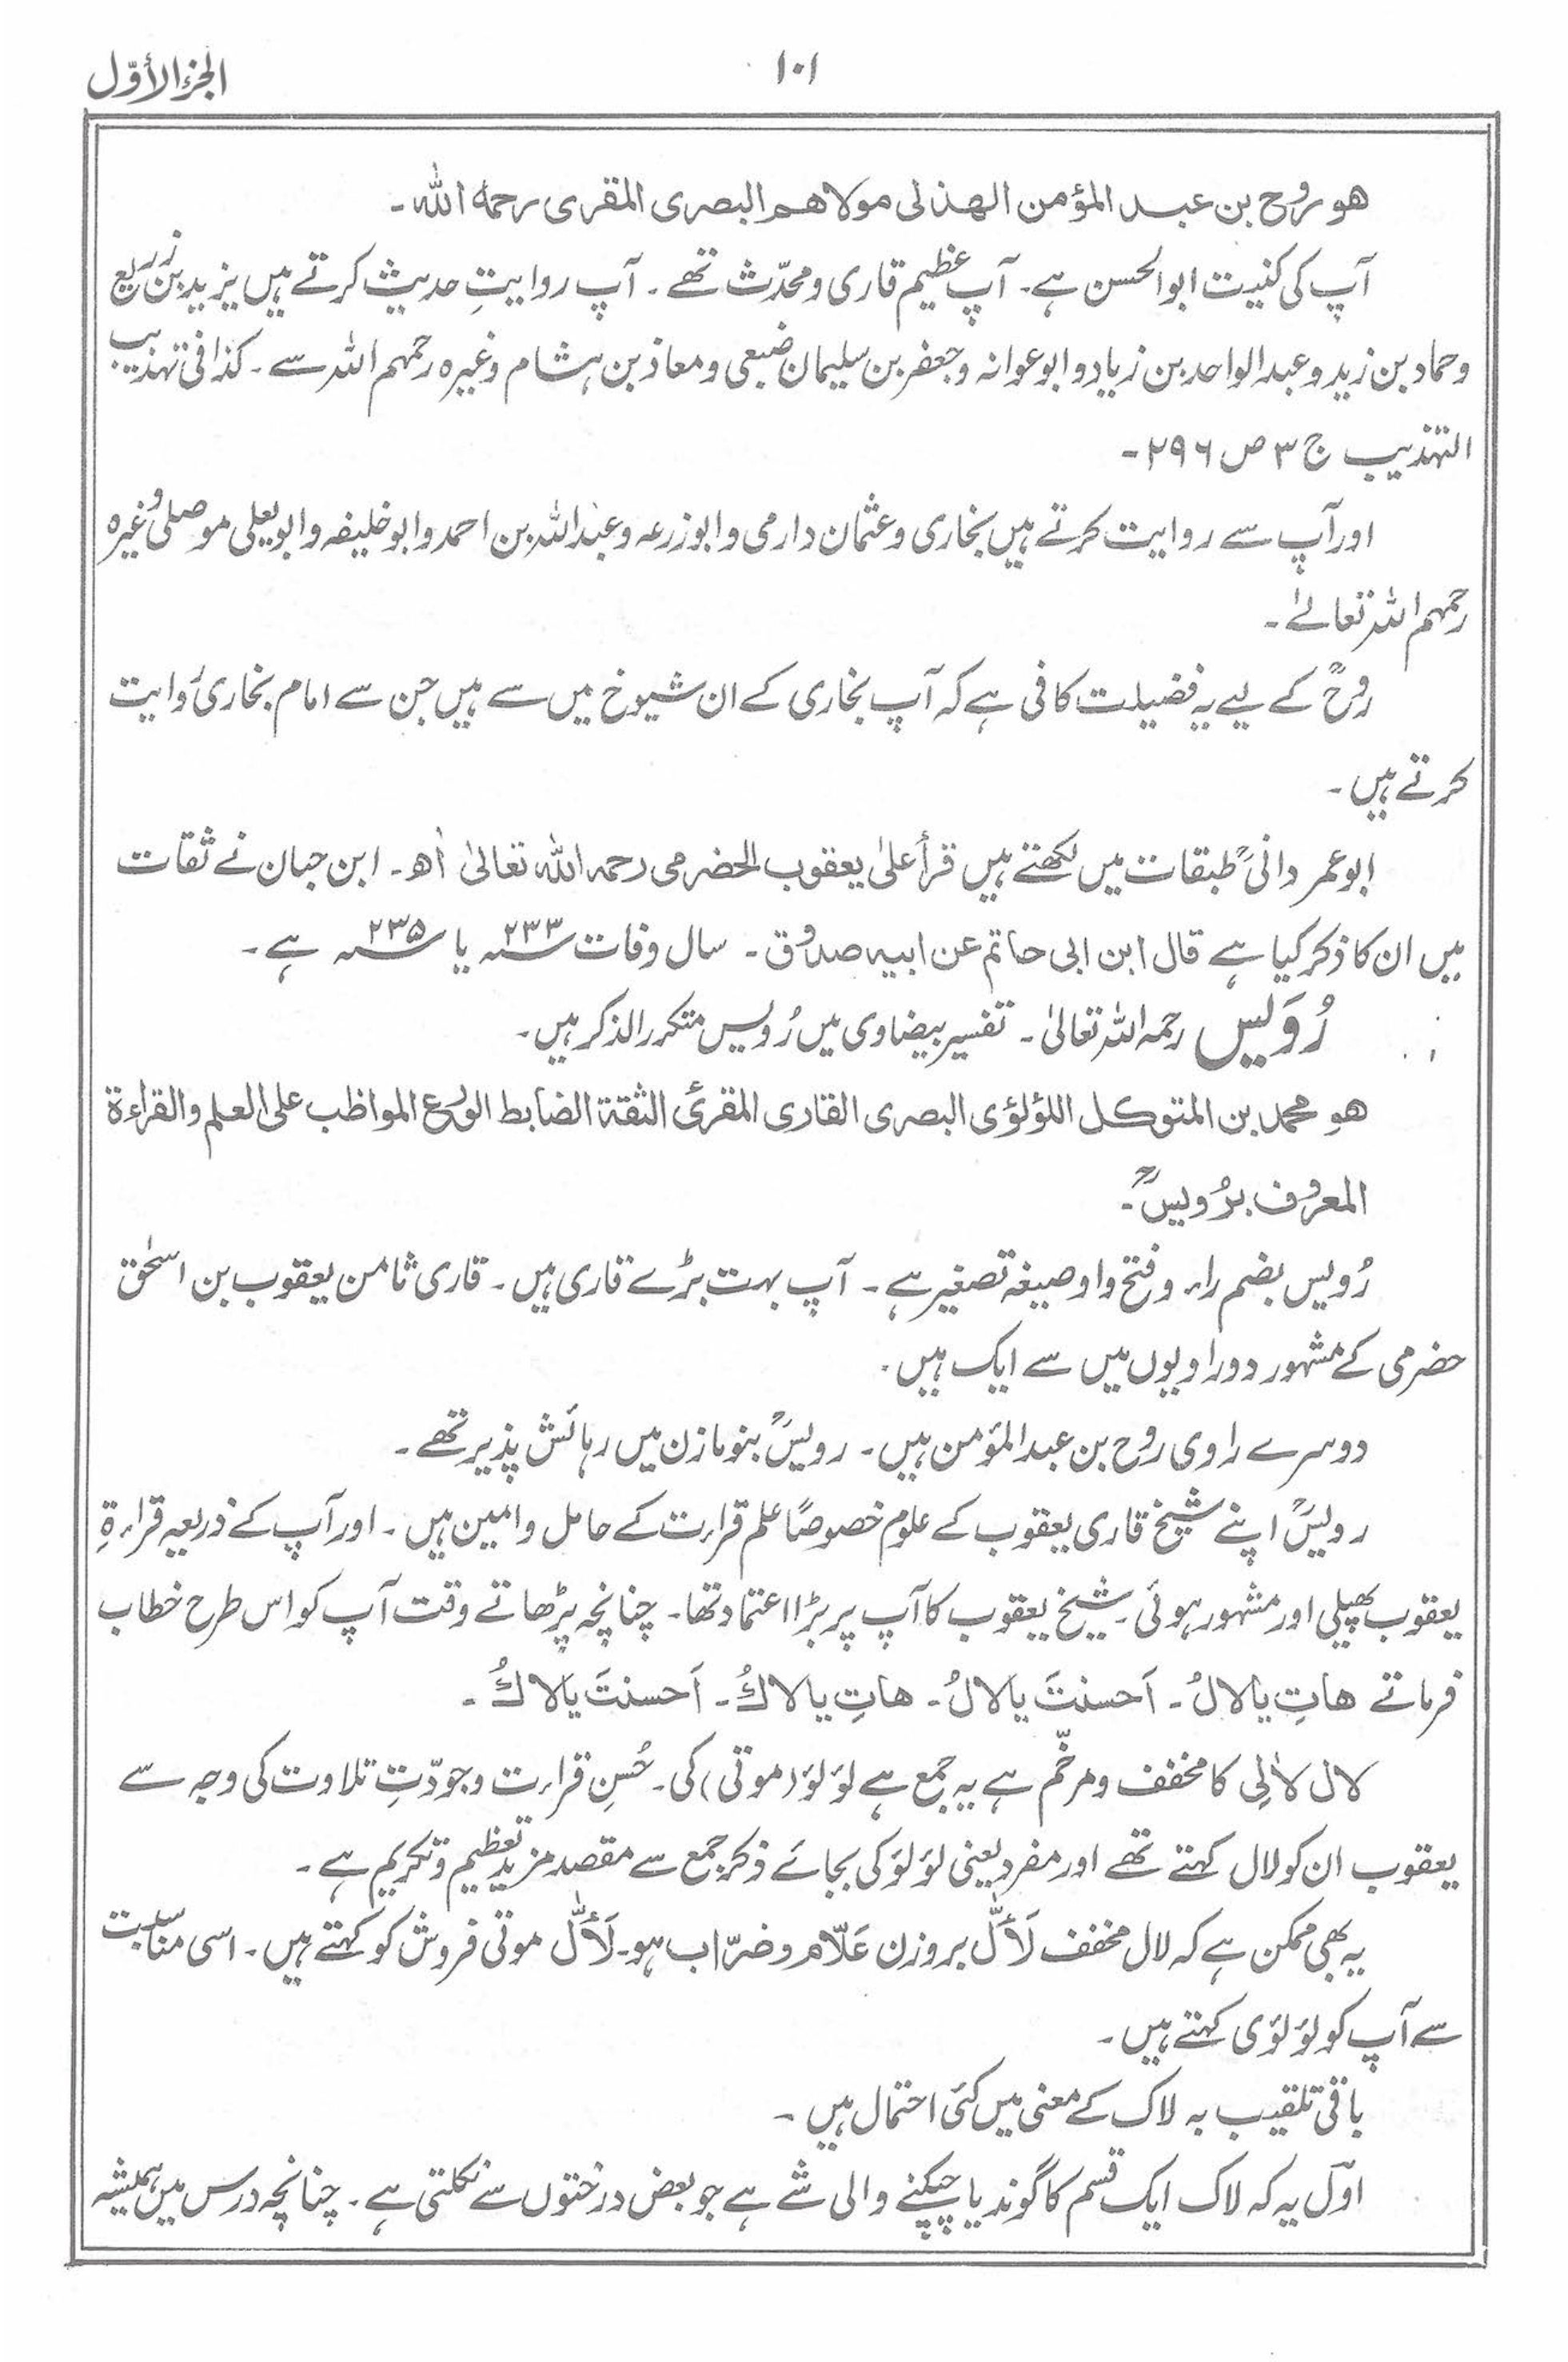 الجزء الأوّل
۱۰۱
هو روح بن عبد المؤمن الهذلی مولاهم البصری المقری رحمہ اللہ ۔
آپ کی کنیت ابوالحسن ہے۔ آپ عظیم قاری و محدّث تھے ۔ آپ روایتِ حدیث کرتے ہیں یزید بن زریع
وحماد بن زید و عبدالواحد بن زیاد و ابوعوانہ وجعفر بن سلیمان ضبعی و معاذ بن ہشام وغیرہ رحمہم اللہ سے ۔ کذا فی تہذیب
التہذیب ج ۳ ص ۲۹۶ ۔
اور آپ سے روایت کرتے ہیں بخاری و عثمان دارمی و ابوزرعہ و عبداللہ بن احمد و ابوخلیفہ و ابویعلی موصلی وغیرہ
رحمہم اللہ تعالےٰ ۔
روحؒ کے لیے یہ فضیلت کافی ہے کہ آپ بخاری کے ان شیوخ میں سے ہیں جن سے امام بخاریؒ روایت
کرتے ہیں ۔
ابوعمر دانیؒ طبقات میں لکھتے ہیں قرأ علیٰ یعقوب الحضرمی رحمہ اللہ تعالیٰ اھ ۔ ابن حبان نے ثقات
میں ان کا ذکر کیا ہے قال ابن ابی حاتم عن ابیہ صدوق ۔ سال وفات ۲۳۳؁ھ یا ۲۳۵؁ھ ہے ۔
رُوَیس رحمہ اللہ تعالیٰ ۔ تفسیر بیضاوی میں رُویس متکرر الذکر ہیں ۔
هو محمد بن المتوکل اللؤلؤی البصری القاری المقرئ الثقة الضابط الورع المواظب علی العلم والقراءة
المعروف برُویسؒ ۔
رُویس بضم راء و فتح واو صیغہ تصغیر ہے ۔ آپ بہت بڑے قاری ہیں ۔ قاری ثامن یعقوب بن اسحٰق
حضرمی کے مشہور دو راویوں میں سے ایک ہیں ۔
دوسرے راوی روح بن عبدالمؤمن ہیں ۔ رویسؒ بنو مازن میں رہائش پذیر تھے ۔
رویسؒ اپنے شیخ قاری یعقوب کے علوم خصوصًا علم قراءت کے حامل و امین ہیں ۔ اور آپ کے ذریعہ قراءةِ
یعقوب پھیلی اور مشہور ہوئی ۔ شیخ یعقوب کا آپ پر بڑا اعتماد تھا ۔ چنانچہ پڑھاتے وقت آپ کو اس طرح خطاب
فرماتے هاتِ یالالُ ۔ اَحسنتَ یالالُ ۔ هاتِ یالاكُ ۔ اَحسنتَ یالاكُ ۔
لال لاٰلِی کا مخفف و مرخّم ہے یہ جمع ہے لؤلؤ (موتی) کی ۔ حُسنِ قراءت و جودّتِ تلاوت کی وجہ سے
یعقوب ان کو لال کہتے تھے اور مفرد یعنی لؤلؤ کی بجائے ذکر جمع سے مقصد مزید تعظیم و تکریم ہے ۔
یہ بھی ممکن ہے کہ لال مخفف لَأَّل بروزن عَلّام و ضرّاب ہو ۔ لَأَّل موتی فروش کو کہتے ہیں ۔ اسی مناسبت
سے آپ کو لؤلؤی کہتے ہیں ۔
باقی تلقیب بہ لاک کے معنی میں کئی احتمال ہیں ۔
اوّل یہ کہ لاک ایک قسم کا گوند یا چپکنے والی شے ہے جو بعض درختوں سے نکلتی ہے ۔ چنانچہ درس میں ہمیشہ